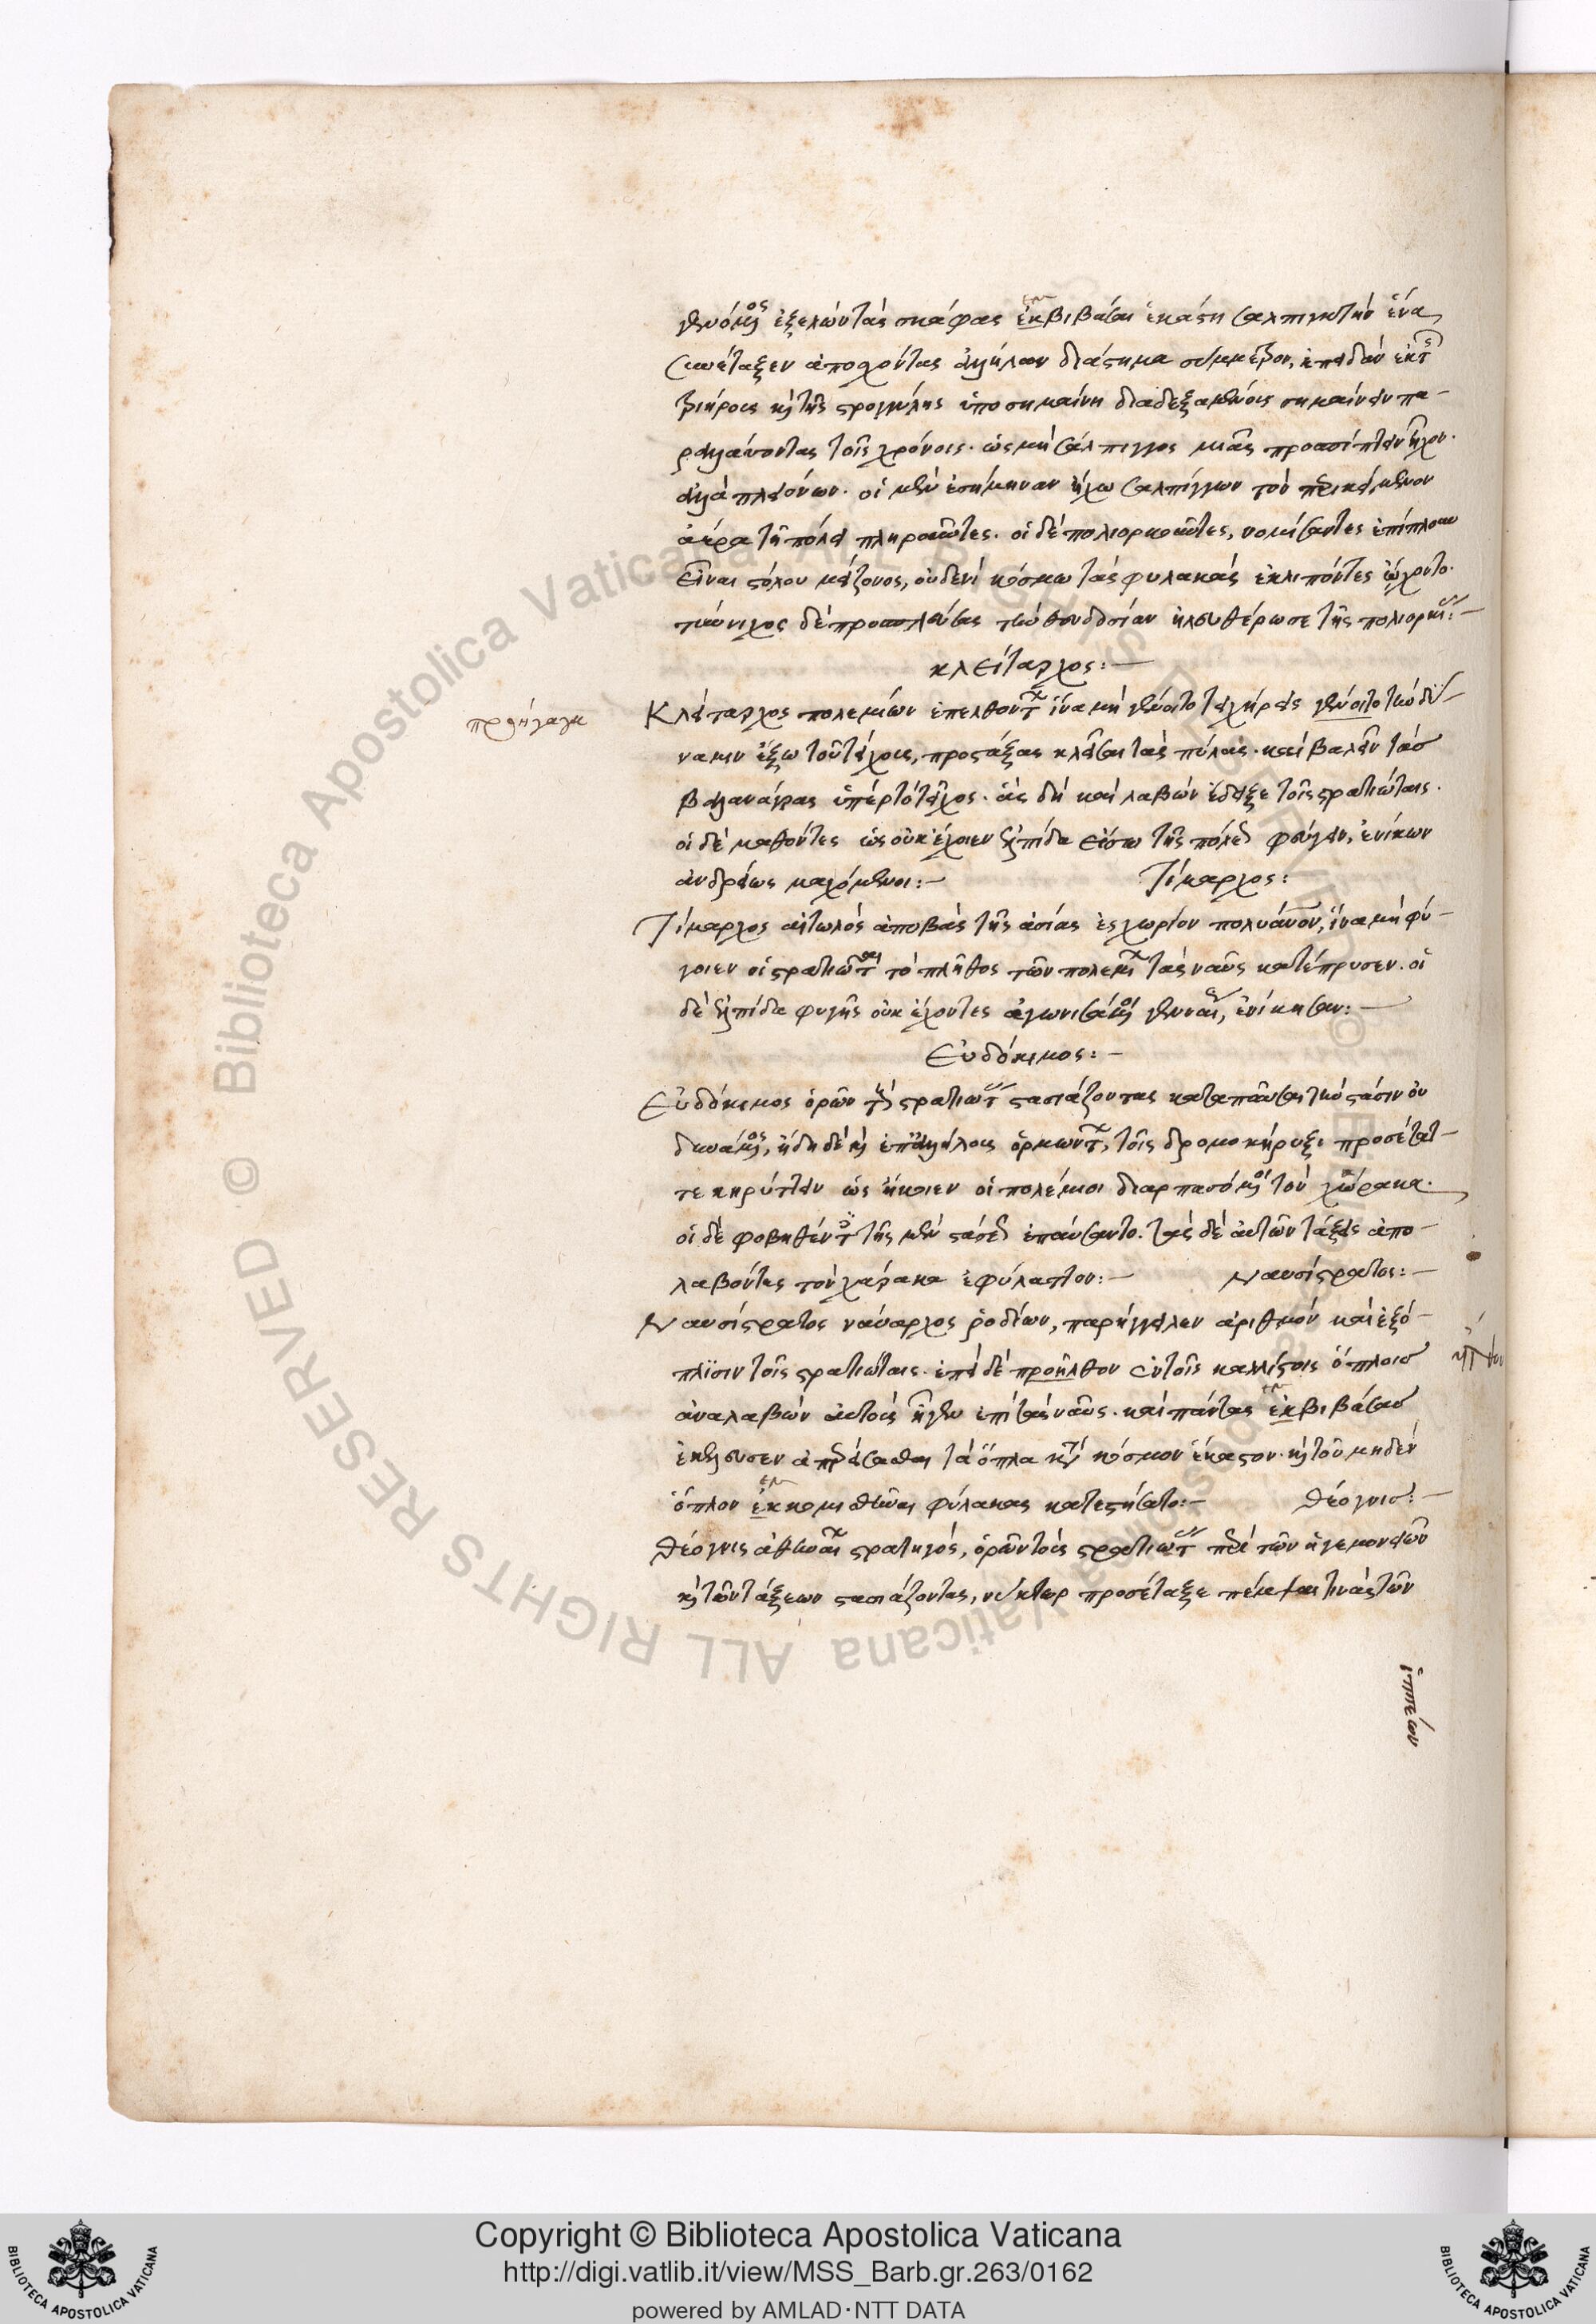 γενόμενος ἐξελὼν τὰς σκάφας ἐκβιβάσαι ἑκάστη σαλπιγκτὴν ἕνα
συνέταξεν ἀπέχοντας ἀλλήλων διάστημα σύμμετρον, ἐπειδὰν ἐκ τῆς
τριήρους καὶ τῆς στρογγύλης ὑποσημαίνη διαδεξαμένους σημαίνειν πα-
ραλλάττοντας τοῖς χρόνοις. ὡς μὴ σάλπιγγος μιᾶς προσπίπτειν ἦχον.
ἀλλὰ πλειόνων. οἱ μὲν ἐσήμηναν ἤχω σαλπίγγων τὸν περικείμενον
ἀέρα τῆ πόλει πληροῦντες. οἱ δὲ πολιορκοῦντες, νομίσαντες ἐπίπλουν
εἶναι στόλου μείζονος, οὐδενὶ κόσμω τὰς φυλακὰς ἐκλιπόντες ὤχοντο.
τύννιχος δὲ προσπλεύσας τὴν θευδοσίαν ἠλευθέρωσε τῆς πολιορκίας:-
κλείταρχος:-
Κλείταρχος πολεμίων ἐπελθόντων ἵνα μὴ γένοιτο τειχήρεις γένοιτο τὴν δύ-
προήγαγε
ναμιν ἔξω τοῦ τείχους, προστάξας κλεῖσαι τὰς πύλας. καὶ βαλεῖν τὰς
βαλανάγρας ὑπὲρ τὸ τεῖχος. ἃς δὴ καὶ λαβὼν ἔδειξε τοῖς στρατιώταις.
οἱ δὲ μαθόντες ὡς οὐκ ἔχοιεν ἐλπίδα εἴσω τῆς πόλεως φεύγειν, ἐνίκων
ἀνδρείως μαχόμενοι:- Τίμαρχος:
Τίμαρχος αἰτωλὸς ἀποβὰς τῆς ἀσίας ἐς χωρίον πολυάνθρωπον, ἵνα μὴ φύ-
γοιεν οἱ στρατιῶται τὸ πλῆθος τῶν πολεμίων τὰς ναῦς κατέπρησεν. οἱ
δὲ ἐλπίδα φυγῆς οὐκ ἔχοντες ἀγωνισάμενοι γενναίως, ἐνίκησαν:-
Εὐδόκιμος:-
Εὐδόκιμος ὁρῶν τοὺς στρατιώτας στασιάζοντας καταπαῦσαι τὴν στάσιν οὐ
δυνάμενος, ἤδη δὲ καὶ ἐπ' ἀλλήλους ὁρμώντων, τοῖς δρομοκήρυξι προσέτατ-
τε κηρύττειν ὡς ἥκοιεν οἱ πολέμιοι διαρπασόμενοι τὸν χάρακα.
οἱ δὲ φοβηθέντες τῆς μὲν στάσεως ἐπαύσαντο. τὰς δὲ αὐτῶν τάξεις ἀπο-
λαβόντες τὸν χάρακα ἐφύλαττον:- Ναυσίστρατος:-
Ναυσίστρατος ναύαρχος ῥοδίων, παρήγγειλεν ἀριθμὸν καὶ ἐξό-
πλισιν τοῖς στρατιώταις. ἐπεὶ δὲ προῆλθον ἐν τοῖς καλλίστοις ὅπλοις
ἀναλαβὼν αὐτοὺς ἦγεν ἐπὶ τὰς ναῦς. καὶ πάντας ἐκβιβάσας
ἐκέλευσεν ἀπερείσασθαι τὰ ὅπλα κατὰ κόσμον ἕκαστον. καὶ τοῦ μηδὲν
ὅπλον ἐκκομισθῆναι φύλακας κατεστήσατο:- Θέογνις:-
Θέογνις ἀθηναίων στρατηγός, ὁρῶν τοὺς στρατιώτας περὶ τῶν ἡγεμονειῶν
καὶ τῶν τάξεων στασιάζοντας, νύκτωρ προσέταξε πέμψαι τινὰς τῶν
ἱππέων
Copyright © Biblioteca Apostolica Vaticana
http://digi.vatlib.it/view/MSS_Barb.gr.263/0162
powered by AMLAD·NTT DATA